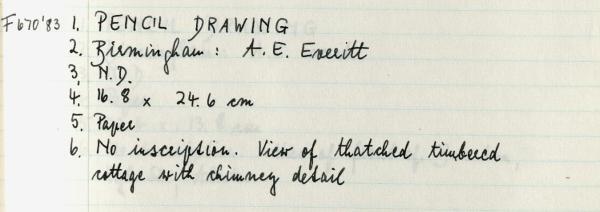 F670'83 1. PENCIL DRAWING
2. Birmingham: A. E. Everitt
3. N.D.
4. 16.8 x 24.6 cm
5. Paper
6. No inscription. View of thatched timbered
cottage with chimney detail